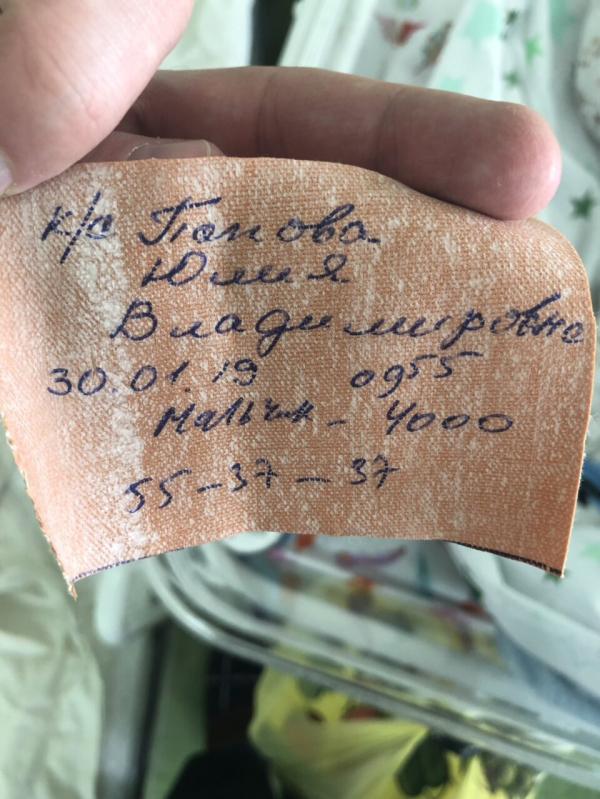 к/с Панова
Юлия
Владимировна
30.01.19 09⁵⁵
Мальчик - 4000
55-37-37